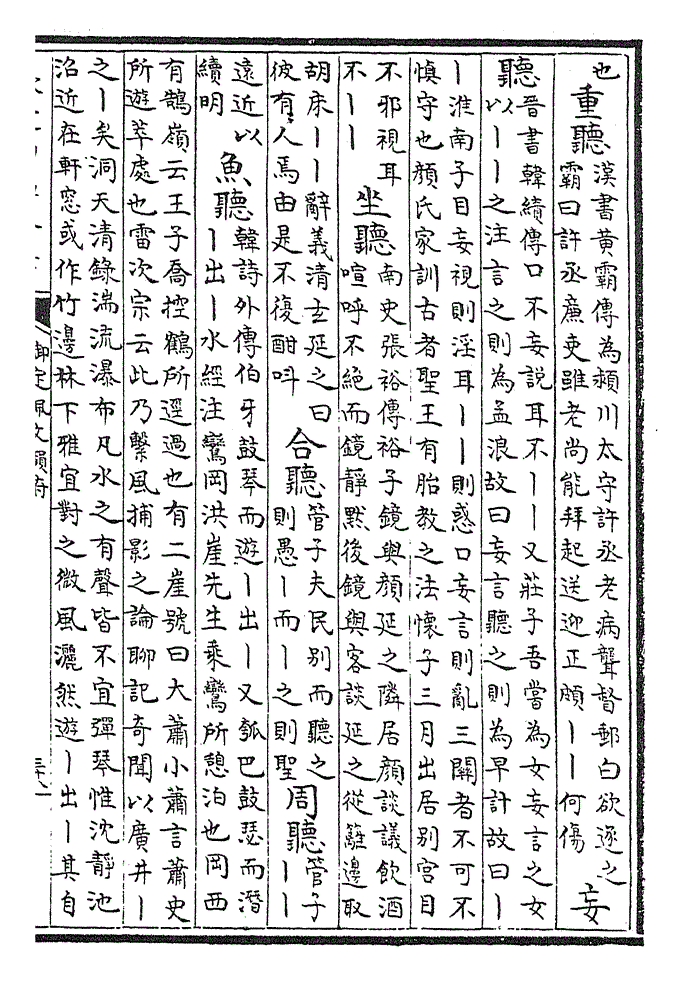 也
重聽
漢書黄霸傳為頴川太守許丞老病聾督郵白欲逐之
霸曰許丞亷吏雖老尚能拜起送迎正頗丨丨何傷
妄
聽
晉書韓績傳口不妄說耳不丨丨又莊子吾嘗為女妄言之女
以丨丨之注言之則為孟浪故曰妄言聽之則為早計故曰丨
丨淮南子目妄視則淫耳丨丨則惑口妄言則亂三關者不可不
慎守也顔氏家訓古者聖王有胎教之法懷子三月出居别宫目
不邪視耳
不丨丨
坐聽
南史張裕傳裕子鏡與顔延之隣居顔談議飲酒
喧呼不絶而鏡靜黙後鏡與客談延之從籬邊取
胡床丨丨辭義清玄延之曰
彼有人焉由是不復酣呌
合聽
管子夫民别而聽之
則愚丨而丨之則聖
周聽
管子
丨丨
遠近以
續明
魚聽
韓詩外傳伯牙鼓琴而遊丨出丨又瓠巴鼓瑟而潛
丨出丨水經注鸞岡洪崖先生乘鸞所憩泊也岡西
有鵠嶺云王子喬控鶴所逕過也有二崖號曰大蕭小蕭言蕭史
所遊萃處也雷次宗云此乃繫風捕影之論聊記奇聞以廣井丨
之丨矣洞天清錄湍流瀑布凡水之有聲皆不宜彈琴惟沈靜池
沼近在軒窓或作竹邊林下雅宜對之微風灑然遊丨出丨其自
御定佩文韻府